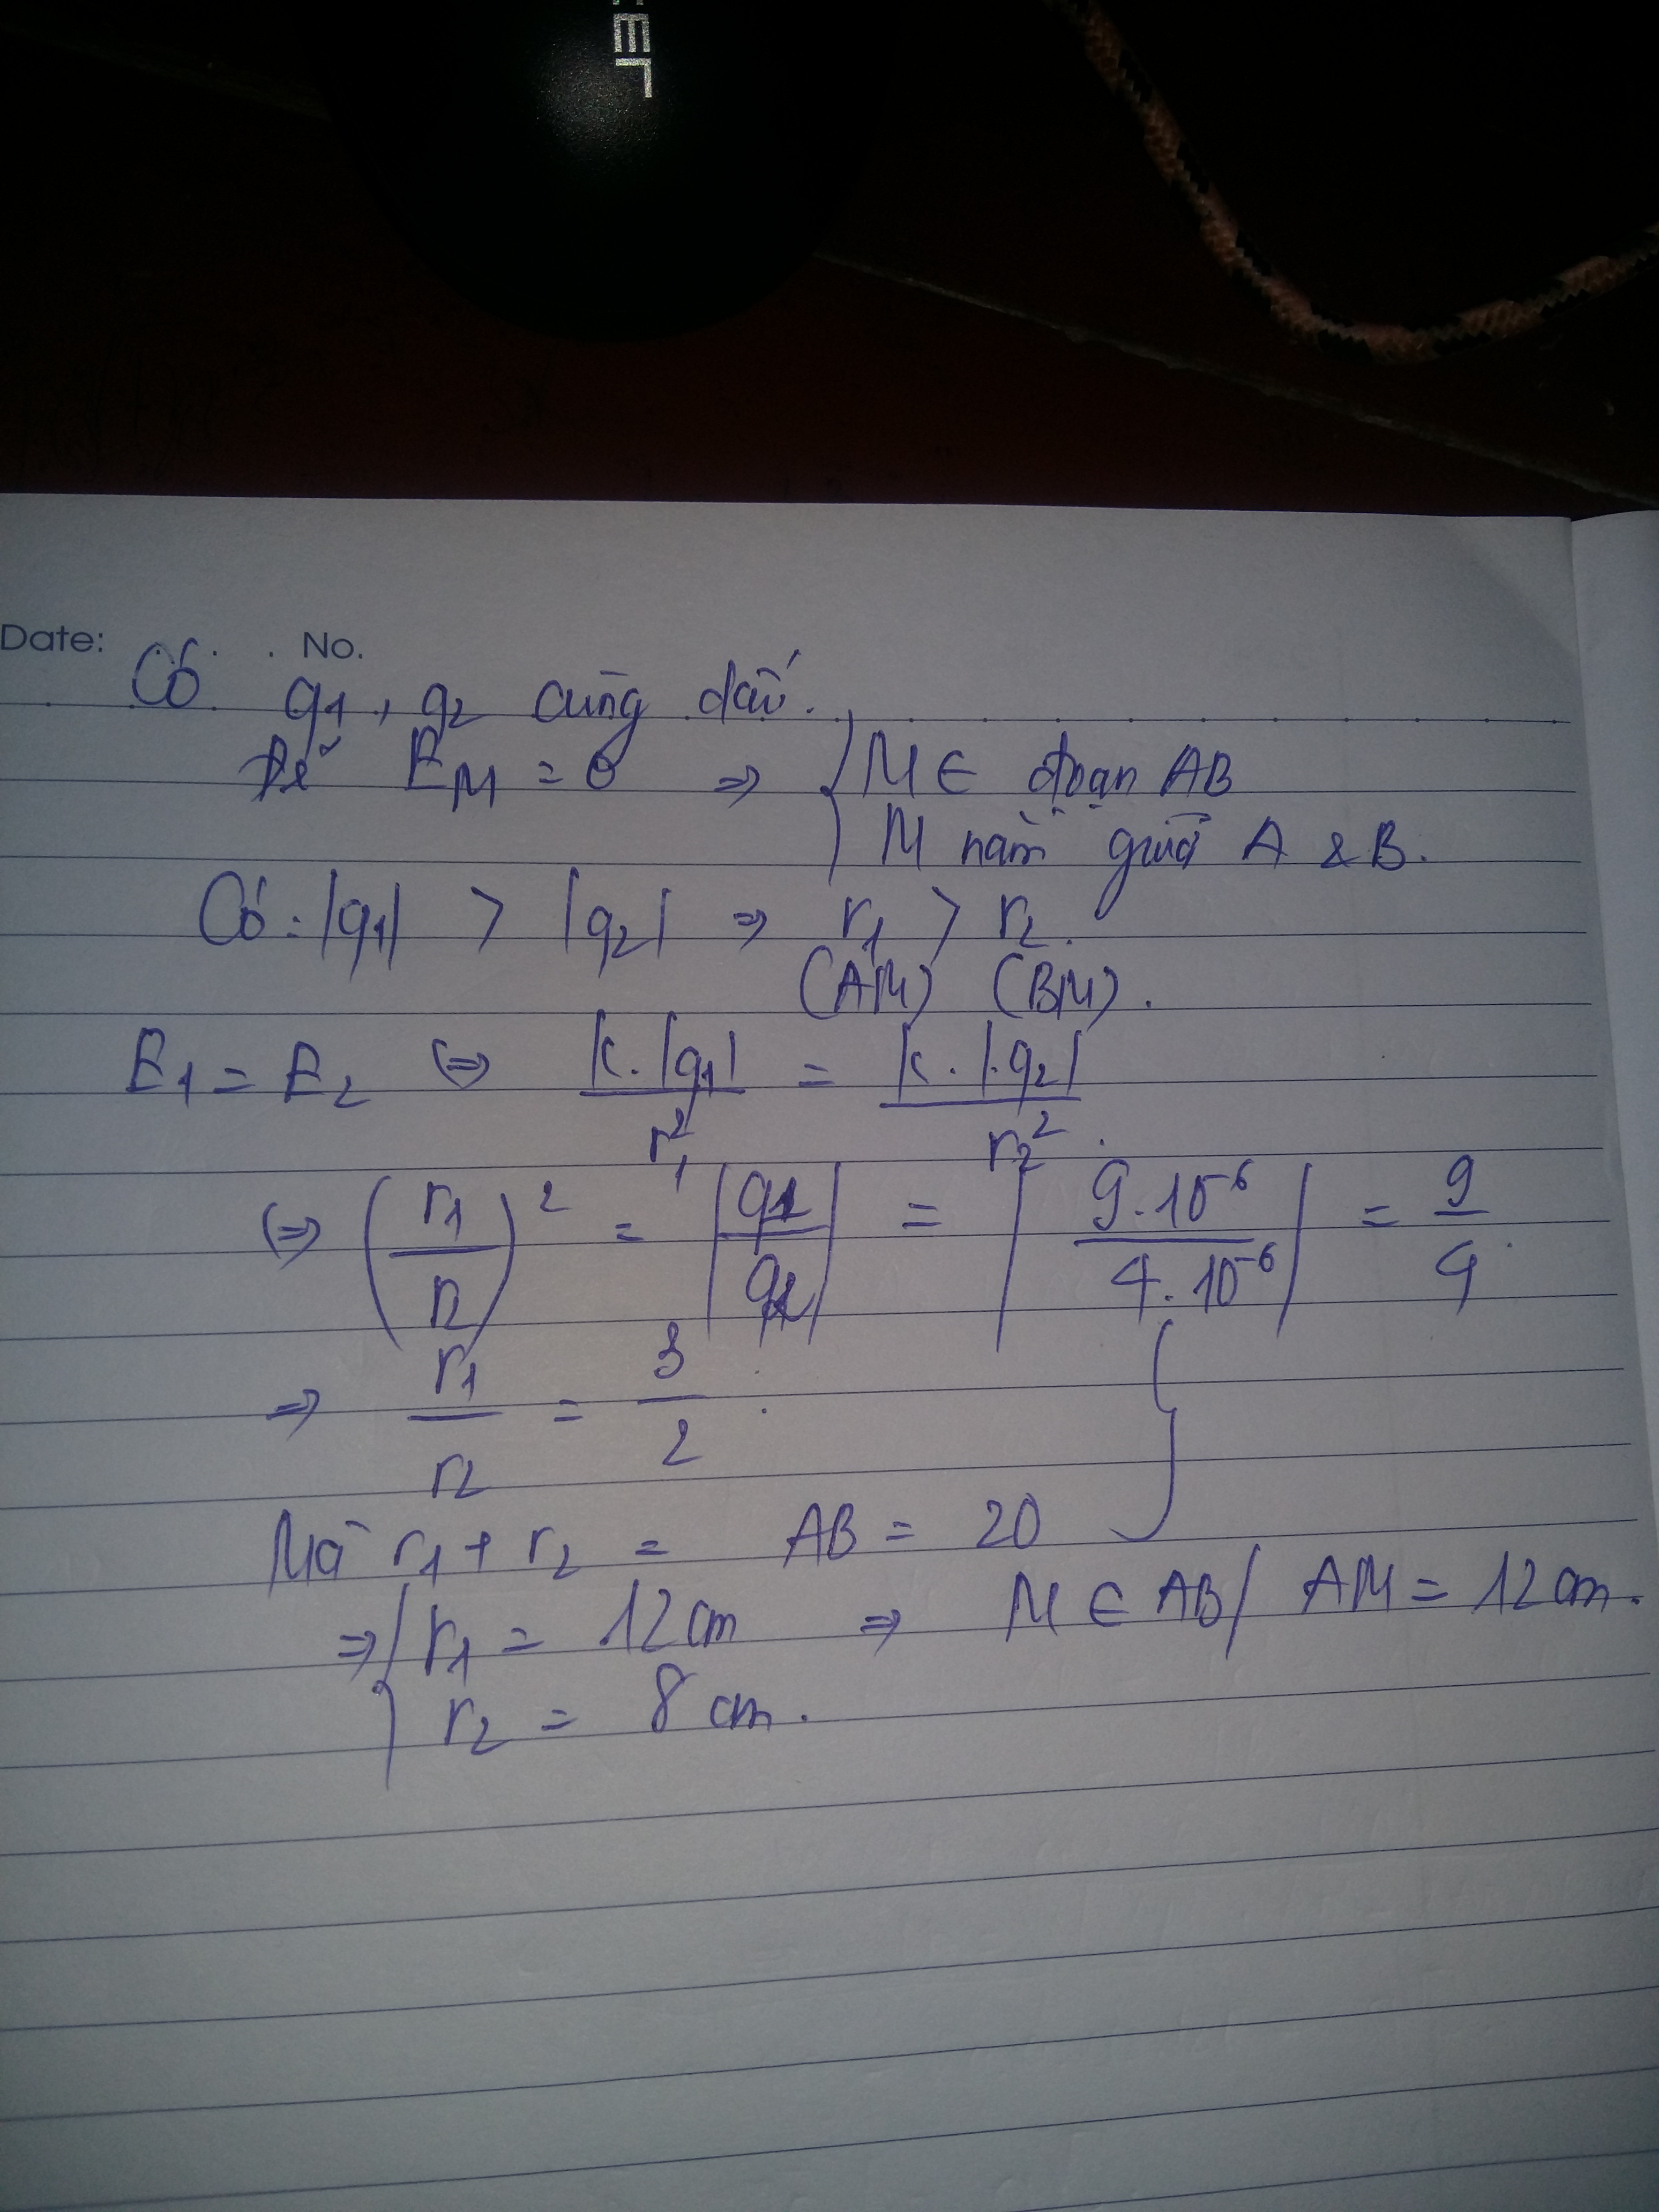 CEL
Date: No.
Có q1, q2 cùng dấu.
Để EM = 0 ⇒ { M ∈ đoạn AB
M nằm giữa A & B.
Có: |q1| > |q2| ⇒ r1 > r2.
(AM) (BM).
E1 = E2 ⇔ k.|q1| / r1² = k.|q2| / r2².
⇔ (r1/r2)² = |q1/q2| = |9.10⁻⁶ / 4.10⁻⁶| = 9/4.
⇒ r1/r2 = 3/2.
Mà r1 + r2 = AB = 20 }
⇒ { r1 = 12 cm ⇒ M ∈ AB / AM = 12 cm.
r2 = 8 cm.